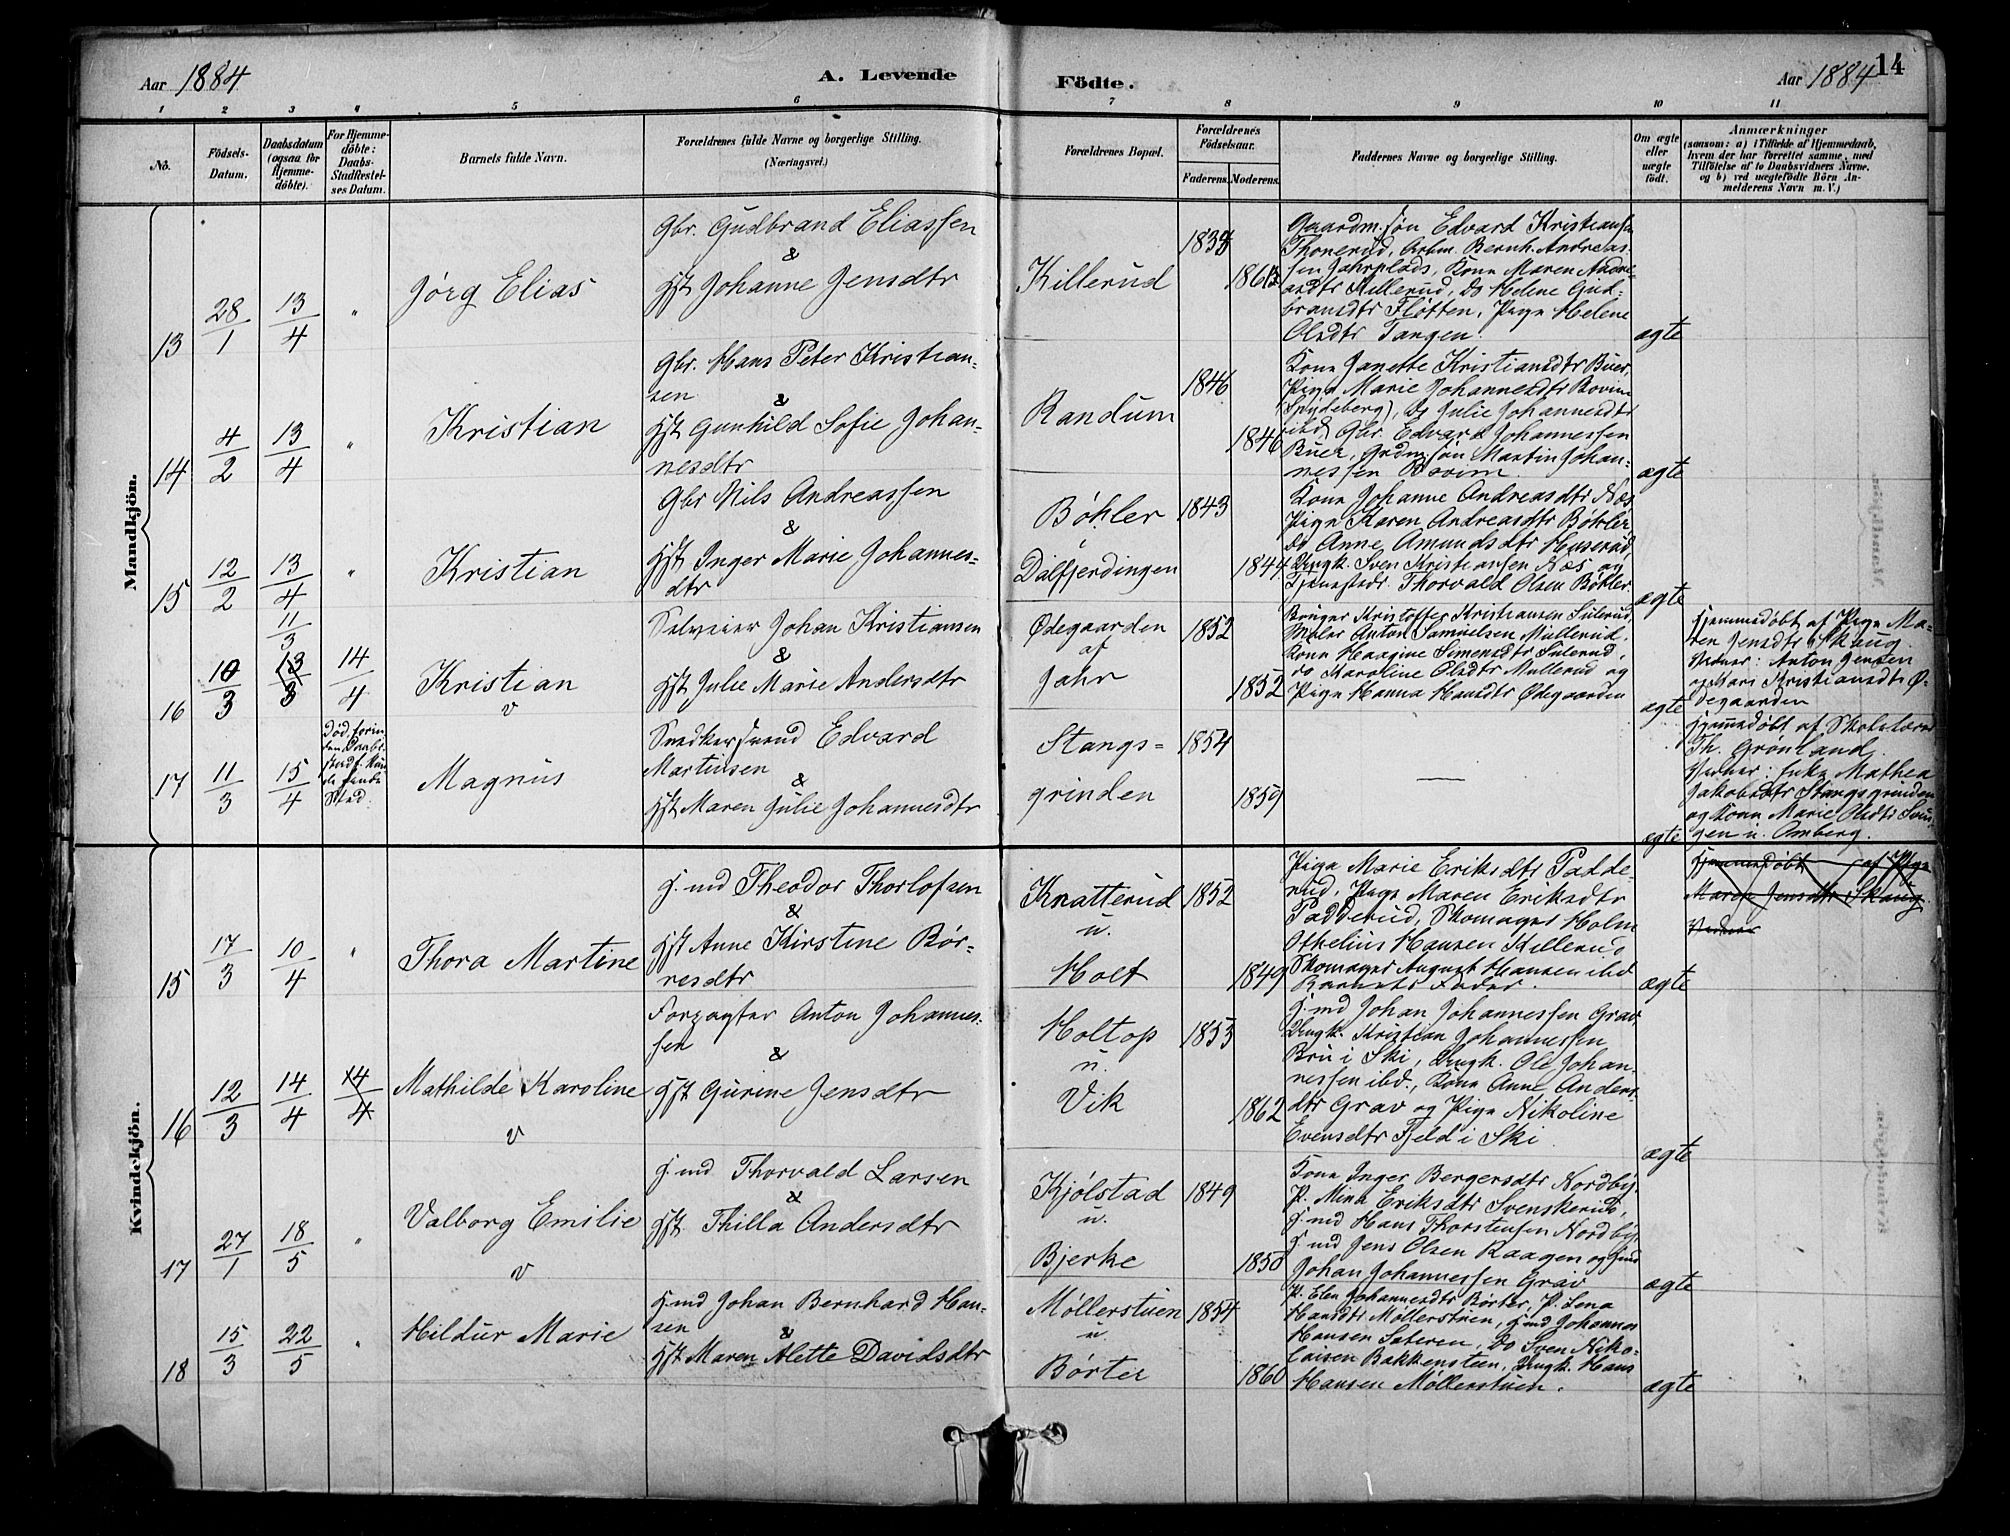 Aar 1884
A. Levende
Födte.
Aar 1884
14
1 2 3 " 5 6 7 8 9 10 11
No.
Födsels-
Datum.
Daabsdatum
(ogsaa for
Hjemme-
döbte).
For Hjemme-
döbte:
Daabs-
Stadfæstel-
ses Datum.
Barnets fulde Navn.
Forældrenes fulde Navne og borgerlige Stilling.
(Næringsvei.)
Forældrenes Bopæl.
Forældrenes
Födselsaar.
Faderens. Moderens.
Faddernes Navne og borgerlige Stilling.
Om ægte
eller
uægte
födt.
Anmærkninger
(saasom: a) i Tilfælde af Hjemmedaab,
hvem der har forrettet samme, med
Tilföielse af to Daabsvidners Navne,
og b) ved uægtefödte Börn An-
melderens Navn m. V.)
Mandkjön.
13
28/1
13/4
"
Jørg Elias
Gbr. Gudbrand Eliassen
&
Hst Johanne Jensdtr
Killerud
Gaardm.søn Edvard Kristiansen
Thonerud, Arbm. Bernh. Andreas-
sen Jahrplads, Kona Maren Andre-
asdtr Killerud, Do Helene Gud-
brandsdtr Fløtten, Pige Helene
Olsdtr Tangen.
ægte
14
4/2
13/4
"
Kristian
Gbr. Hans Peter Kristian-
sen
&
Hst Gunhild Sofie Johan-
nesdtr
Randum
1846
1846
Kona Janette Kristiansdtr Buer,
Pige Marie Johannesdtr Bovim
(Spydeberg), Do Julie Johannesdtr
ibd, Gbr. Edvard Johannessen
Buer, Grdm.søn Martin Johan-
nessen Bovim
ægte
15
12/2
13/4
"
Kristian
Gbr Nils Andreassen
&
Hst Inger Marie Johannes-
dtr
Bøhler
Dalfjerdingen
1843
1844
Kona Johanne Andreasdtr Næs
Pige Karen Andreasdtr Bøhler
Do Anne Amundsdtr Huserud,
Ungk. Sven Kristiansen Næs og
Tjenestedr. Thorvald Olsen Bøhler.
ægte
16
10/3
11/3
13/3
14/4
Kristian
v
Selveier Johan Kristiansen
&
Hst Julie Marie Andersdtr
Ødegaarden
af
Jahr
1852
1852
Bruger Kristoffer Kristiansen Sulerud,
Maler Anton Samuelsen Mullerud,
Kona Haagine Simensdtr Sulerud,
do Karoline Olsdtr Mullerud og
Pige Hanna Hansdtr Ødegaarden
ægte
Hjemmedøbt af Pige Ma-
ren Jensdtr Skaug
Vidner: Anton Jensen
og Mari Kristiansdtr Ø-
degaarden
17
11/3
15/4
Død forin-
den Daabs-
stadf. kun-
de finde
Sted.
Magnus
Snedkersvend Edvard
Martinsen
&
Hst Maren Julie Johannesdtr
Stangs-
grinden
1854
1859
—
ægte
Hjemmedøbt af Skolelærer
Th. Grønland.
Vidner: Enke Mathea
Jakobsdtr Stangsgrinden
og Kona Marie Olsdtr Svin-
gen u. Omberg.
Kvindekjön.
15
17/3
10/4
"
Thora Martine
H.md Theodor Thorlofsen
&
Hst Anne Kirstine Bør-
resdtr
Knatterud
u.
Holt
1852
1849
Pige Marie Eriksdtr Padde-
rud, Pige Maren Eriksdtr
Padderud, Skomager Holm
Othelius Hansen Killerud
Skomager August Hansen ibd
Barnets Fader.
ægte
Hjemmedøbt af Pige
Maren Jensdtr Skaug
Vidner
16
12/3
14/4
14/4
Mathilde Karoline
v
Forpagter Anton Johannes-
sen
&
Hst Gurine Jensdtr
Holtop
u.
Vik
1853
1862
H.md Johan Johannessen Grav,
Ungk. Kristian Johannessen
Bru i Ski, Ungk. Ole Johan-
nessen ibd., Kona Anne Anders-
dtr Grav og Pige Nikoline
Evensdtr Fjeld i Ski
ægte
17
27/1
18/5
"
Valborg Emilie
v
H.md Thorvald Larsen
&
Hst. Thilla Andersdtr
Kjølstad
u.
Bjerke
1849
1850
Kona Inger Bergersdtr Nordby,
P. Mina Eriksdtr Svenskerud,
H.md Hans Thorstensen Nordby,
H.md Jens Olsen Kaagen og Hmd
Johan Johannessen Grav
ægte
18
15/3
22/5
"
Hildur Marie
H.md Johan Bernhard Han-
sen
&
Hst Maren Alette Davidsdtr
Møllerstuen
u.
Børter
1854
1860
P. Elen Johannesdtr Børter, P. Lena
Hansdtr Møllerstuen, H.md Johannes
Hansen Sæteren, Do Sven Niko-
laisen Bakkensteen, Ungk. Hans
Hansen Møllerstuen.
ægte